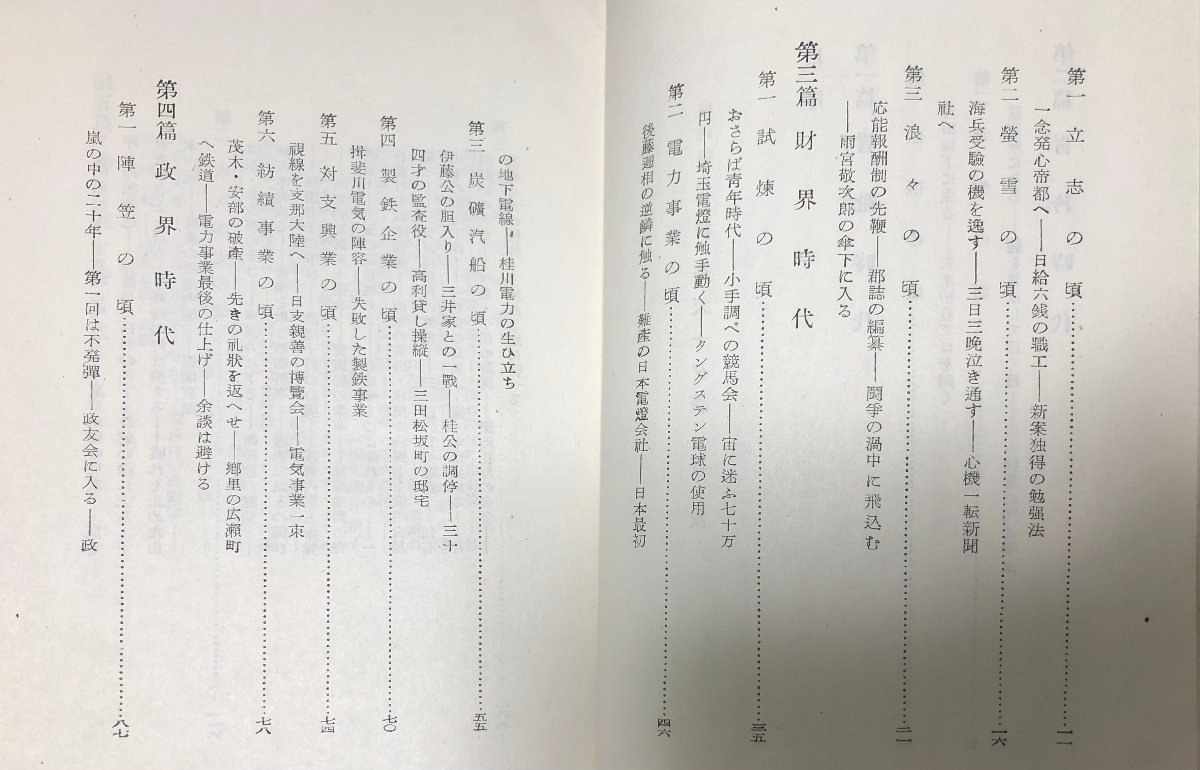 第一 立志の頃……………………一一
一念発心帝都へ――日給六銭の職工――新案独得の勉強法
第二 螢雪の頃……………………一六
海兵受験の機を逸す――三日三晩泣き通す――心機一転新聞
社へ
第三 浪々の頃……………………二一
応能報酬制の先鞭――郡誌の編纂――闘争の渦中に飛込む
――雨宮敬次郎の傘下に入る
第三篇 財界時代
第一 試煉の頃……………………三五
おさらば青年時代――小手調べの競馬会――宙に迷ふ七十万
円――埼玉電燈に触手動く――タングステン電球の使用
第二 電力事業の頃……………………四六
後藤逓相の逆鱗に触る――難産の日本電燈会社――日本最初
の地下電線――桂川電力の生ひ立ち
第三 炭礦汽船の頃……………………五五
伊藤公の胆入り――三井家との一戰――桂公の調停――三十
四才の監査役――高利貸し操縦――三田松坂町の邸宅
第四 製鉄企業の頃……………………七〇
揖斐川電気の陣容――失敗した製鉄事業
第五 対支興業の頃……………………七四
視線を支那大陸へ――日支親善の博覽会――電気事業一束
第六 紡績事業の頃……………………七八
茂木・安部の破產――先きの祀狀を返へせ――郷里の広瀬町
へ鉄道――電力事業最後の仕上げ――余談は避ける
第四篇 政界時代
第一 陣笠の頃……………………八七
嵐の中の二十年――第一回は不発彈――政友会に入る――政